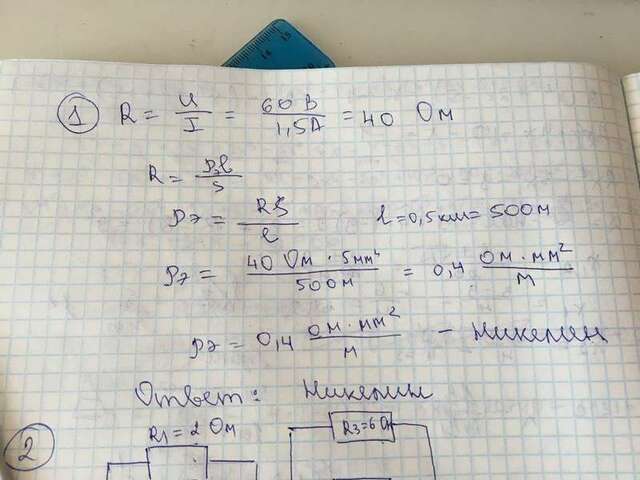 1 R = U/I = 60 В/1,5А = 40 Ом
R = ρэl/S
ρэ = RS/l l = 0,5 км = 500м
ρэ = 40 Ом · 5мм²/500м = 0,4 Ом · мм²/м
ρэ = 0,4 Ом · мм²/м – Никелин
Ответ: Никелин
2 R1 = 2 Ом R3=6 Ом